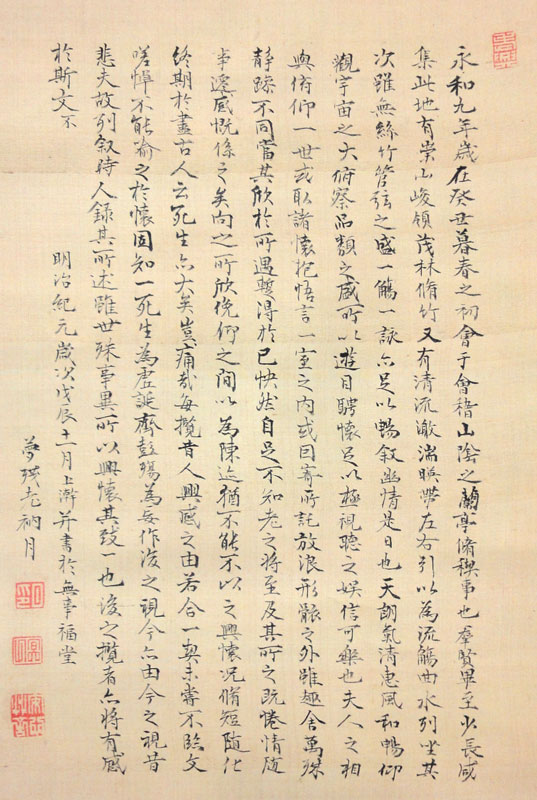 永和九年歳在癸丑暮春之初會于會稽山陰之蘭亭脩稧事也羣賢畢至少長咸
集此地有崇山峻領茂林脩竹又有清流激湍暎帶左右引以為流觴曲水列坐其
次雖無絲竹管弦之盛一觴一詠亦足以暢叙幽情是日也天朗氣清惠風和暢仰
觀宇宙之大俯察品類之盛所以遊目騁懷足以極視聽之娛信可樂也夫人之相
與俯仰一世或取諸懷抱悟言一室之内或因寄所託放浪形骸之外雖趣舍萬殊
静躁不同當其欣於所遇蹔得於己怏然自足不知老之將至及其所之既惓情随
事遷感慨係之矣向之所欣俛仰之間以為陳迹猶不能不以之興懷況脩短随化
終期於盡古人云死生亦大矣豈痛哉每攬昔人興感之由若合一契未嘗不臨文
嗟悼不能喻之於懷固知一死生為虚誕齊彭殤為妄作後之視今亦由今之視昔
悲夫故列叙時人録其所述雖世殊事異所以興懷其致一也後之攬者亦將有感
於斯文不
明治紀元歳次戊辰十一月上澣并書於無事福堂
夢殘老衲月